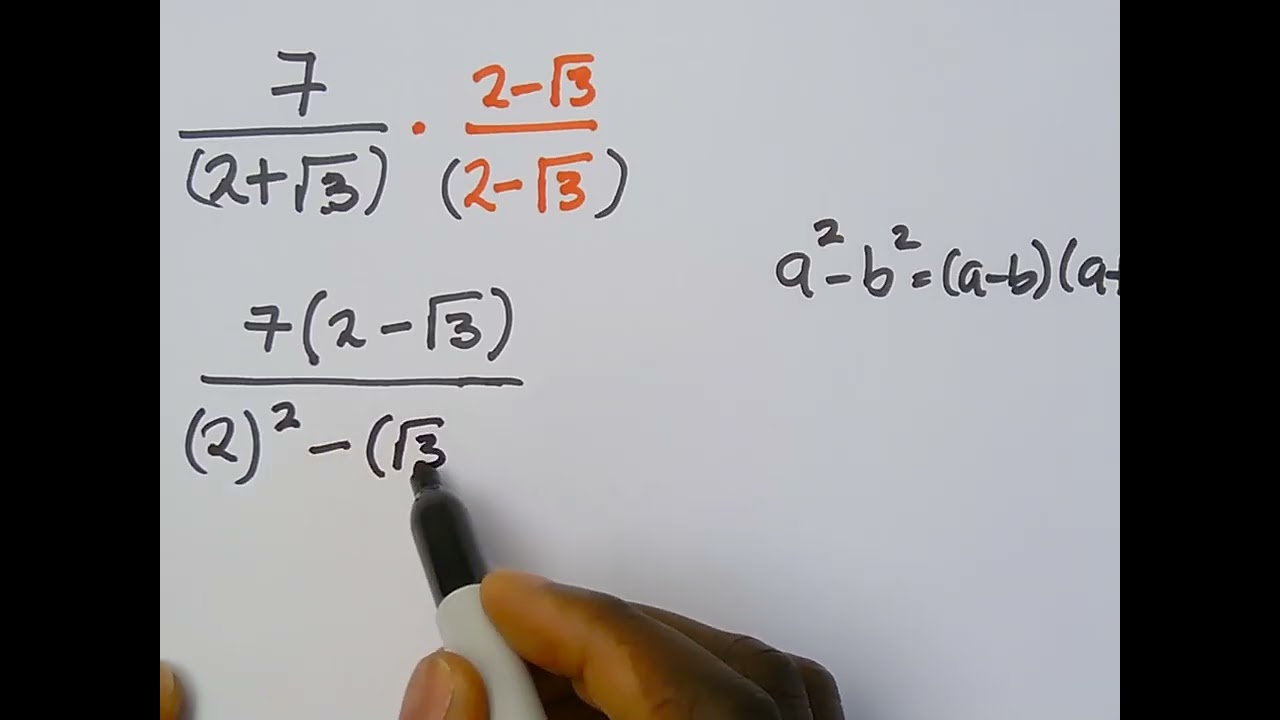 7/(2+√3) · 2-√3/(2-√3)
a²-b²=(a-b)(a+
7(2-√3)
(2)²-(√3